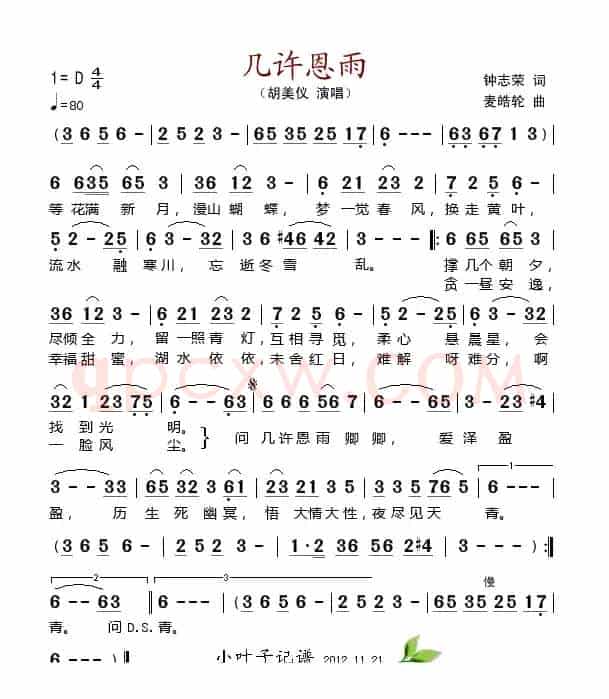 几许恩雨
1=D 4/4
钟志荣 词
♩=80
（胡美仪 演唱）
麦皓轮 曲
(3 6 5 6 - | 2 5 2 3 - | 65 35 25 17 | 6 - - - | 63 67 1 3 )
6 635 65 3 | 36 12 3 - | 6 21 23 2 | 7 2 5 - |
等 花满 新 月，漫山 蝴 蝶，梦 一觉 春 风，换走 黄 叶，
5 2 - 25 | 6 3 - 32 | 3 #46 42 - | 3 - - - |: 6 65 65 3 |
流水 融 寒川，忘 逝冬 雪 乱。 撑 几个 朝 夕，
贪 一昼 安 逸，
36 12 3 - | 6 21 23 2 | 7 2 5 6 - | 5 2 - 25 | 6 3 - 32 |
尽倾 全 力，留 一照 青 灯，互相 寻 觅，柔心 悬 晨星，会
幸福 甜 蜜，湖 水 依 依，未舍 红 日，难解 呀 难分，啊
32 1 23 75 | 6 - - 63 | 6 6 6 567 | 6 - - 25 | 3 - 23 #4 |
找 到 光 明。
一 脸 风 尘。
问 几许恩雨 卿卿， 爱 泽 盈
3 - - 33 | 65 32 3 61 | 2 - - 23 | 23 21 3 5 | 33 5 765 | 6 - - - |
盈， 历 生 死 幽 冥，悟 大情 大性，夜尽见天 青。
(3 6 5 6 - | 2 5 2 3 - | 1·2 36 56 2#4 | 3 - - - ) :|
6 - - 63 || 6 - - - | 3 6 5 6 - | 2 5 2 3 - | 65 35 25 17 |
慢
青。 问D.S.青。
6 - - - ||
小叶子记谱 2012.11.21